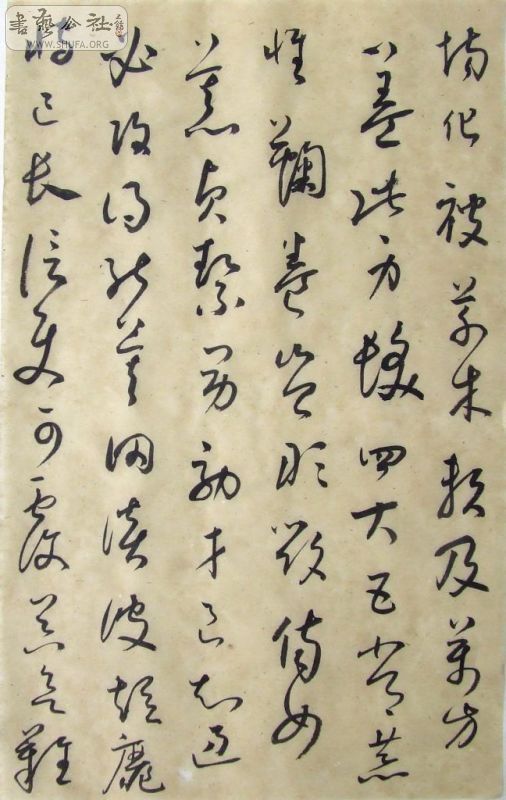 場化被草木賴及萬方
蓋此身髮四大五常恭
惟鞠養豈敢毀傷女
慕貞絜男效才良知過
必改得能莫罔談彼短靡
恃己長信使可覆器欲難
書藝公社
WWW.SHUFA.ORG